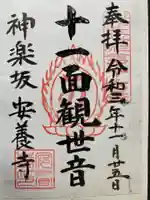 奉拝 令和三年十一月廿五日
十一面観世音
神楽坂 安養寺